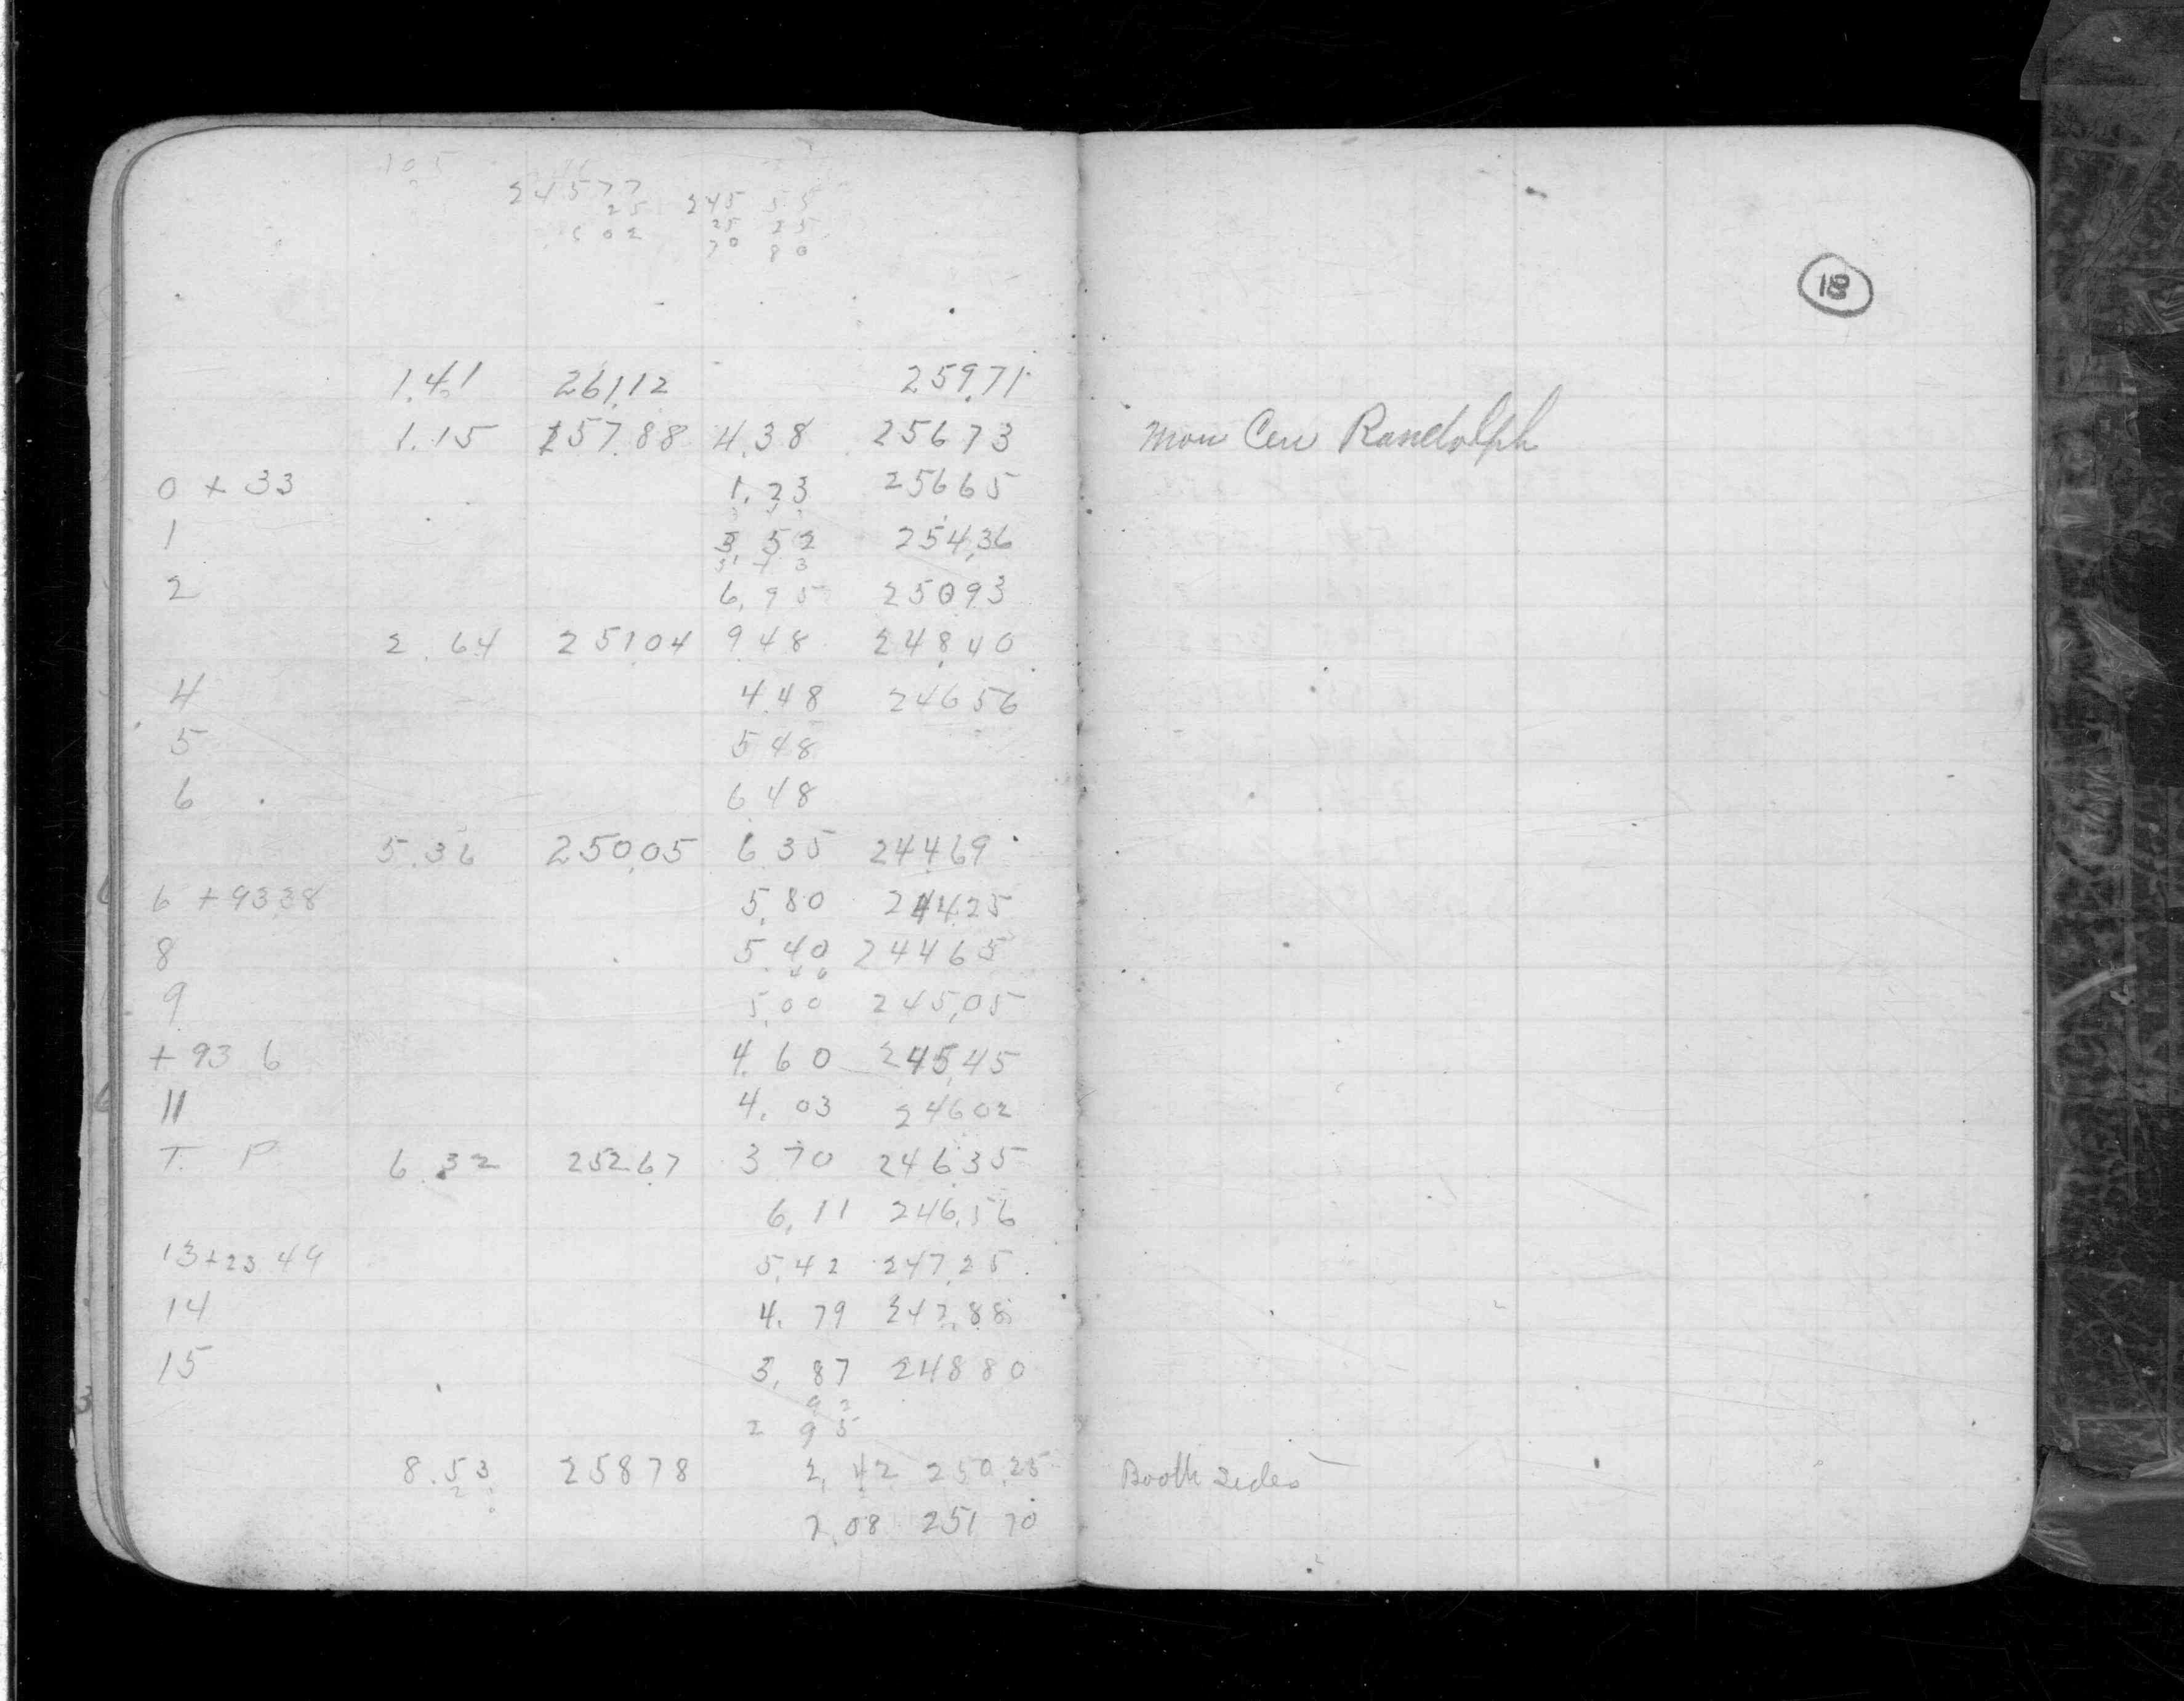 105
24577 245 55
25 25 25
602 70 80
18
1.41 261.12 259.71
1.15 257.88 4.38 256 73 Mon Cen Randolph
0 + 33 1.23 256 65
1 3.52 254.36
2 6.95 250.93
2.64 251.04 9.48 248.40
4 4.48 246 56
5 5 48
6 6 48
5.36 250.05 6 35 244.69
6 + 93.38 5.80 244.25
8 5.40 244 65
9 5.00 245.05
+ 93 6 4.60 245.45
11 4.03 246 02
T. P 6.32 252.67 3 70 246.35
6.11 246.56
13+23 49 5.42 247.25
14 4.79 247.88
15 3.87 248 80
9 2
2 95
8.53 258 78 2.42 250.25 Booth sides
7.08 251 70